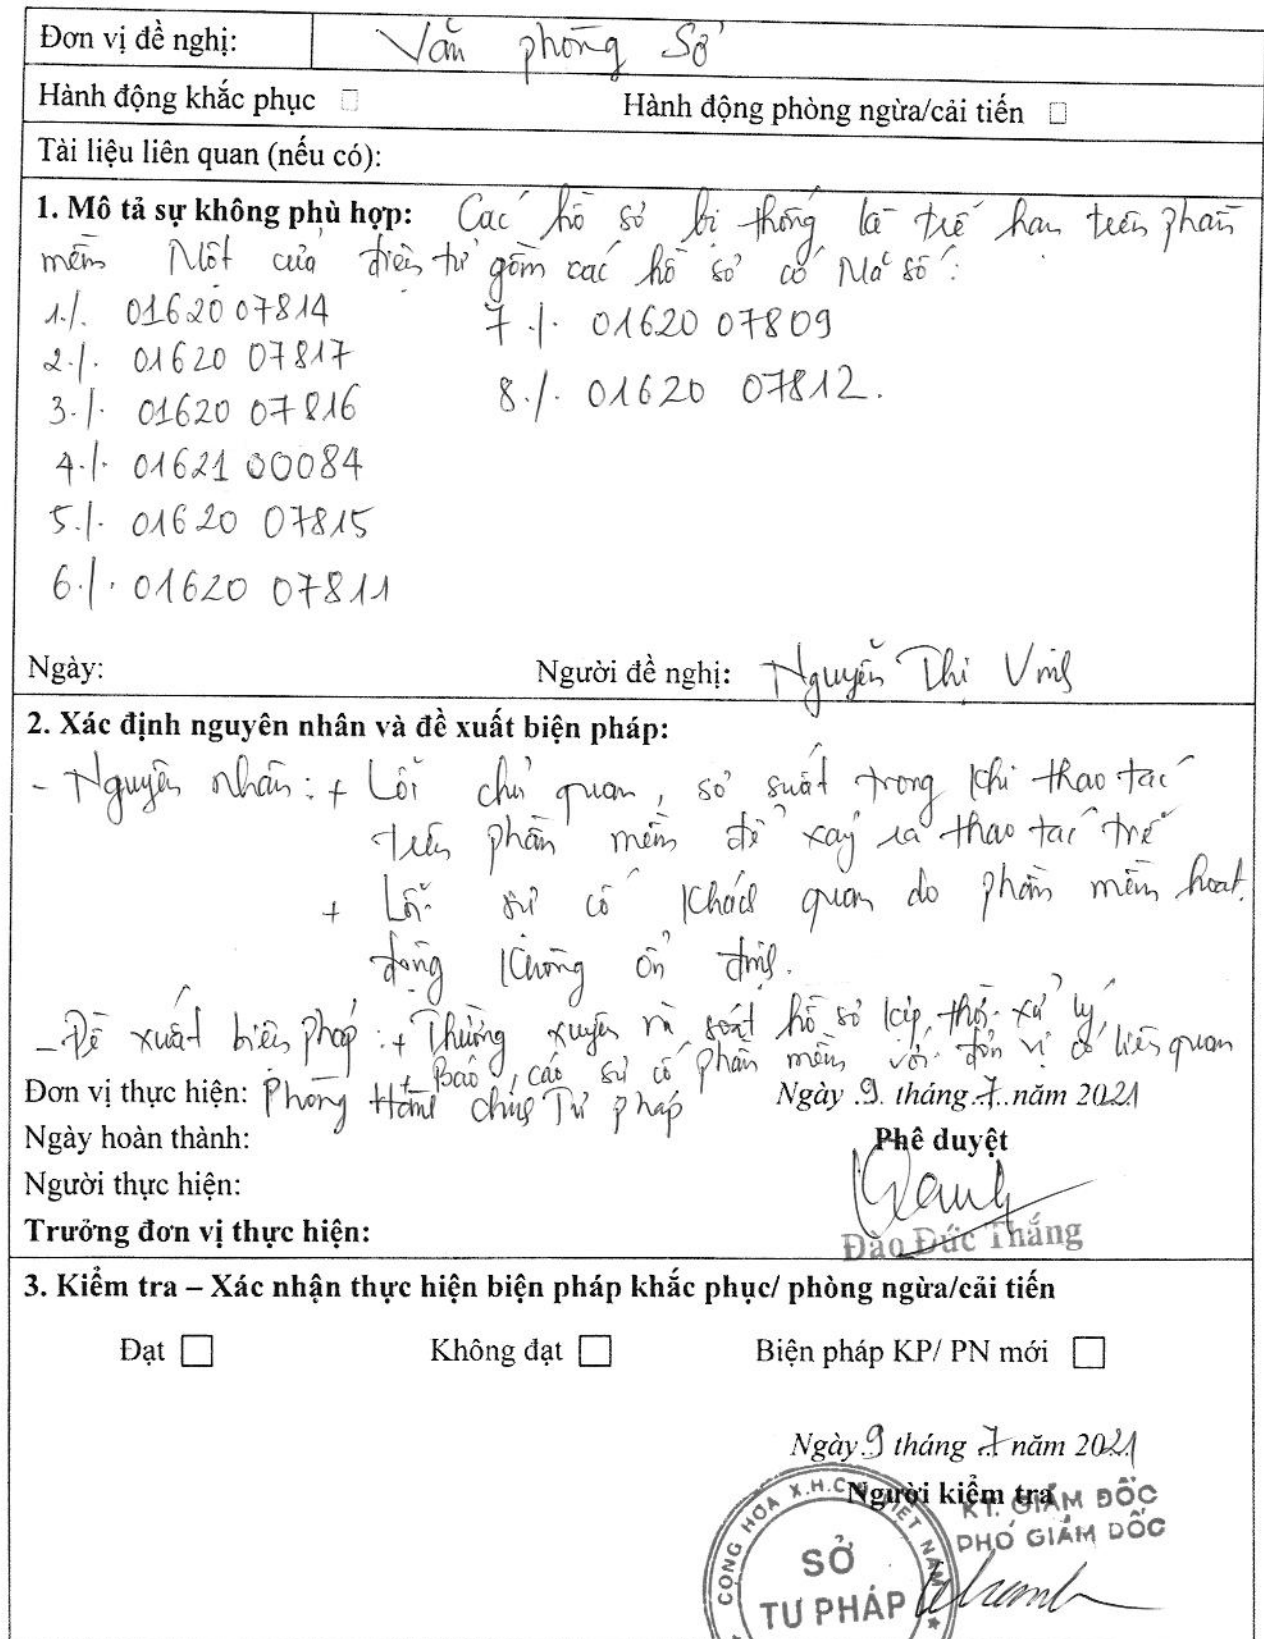 Đơn vị đề nghị: Văn phòng Sở
Hành động khắc phục Hành động phòng ngừa/cải tiến
Tài liệu liên quan (nếu có):
1. Mô tả sự không phù hợp: Các hồ sơ bị thống kê trễ hạn trên phần
mềm Một cửa điện tử gồm các hồ sơ có Mã số:
1./. 01620 07814
2./. 01620 07817
3./. 01620 07816
4./. 01621 00084
5./. 01620 07815
6./. 01620 07811
7./. 01620 07809
8./. 01620 07812.
Ngày: Người đề nghị: Nguyễn Thị Vinh
2. Xác định nguyên nhân và đề xuất biện pháp:
- Nguyên nhân: + Lỗi chủ quan, sơ suất trong khi thao tác
trên phần mềm để xảy ra thao tác trễ
+ Lỗi sự cố khách quan do phần mềm hoạt
động không ổn định.
- Đề xuất biện pháp: + Thường xuyên rà soát hồ sơ kịp thời xử lý,
+ Báo cáo sự cố phần mềm với đơn vị có liên quan
Đơn vị thực hiện: Phòng Hành chính Tư pháp Ngày 9 tháng 7 năm 2021
Ngày hoàn thành: Phê duyệt
Người thực hiện:
Trưởng đơn vị thực hiện: Đào Đức Thắng
3. Kiểm tra – Xác nhận thực hiện biện pháp khắc phục/ phòng ngừa/cải tiến
Đạt Không đạt Biện pháp KP/ PN mới
Ngày 9 tháng 7 năm 2021
Người kiểm tra
KT. GIÁM ĐỐC
PHÓ GIÁM ĐỐC
CỘNG HÒA X.H.C.N VIỆT NAM
SỞ
TƯ PHÁP